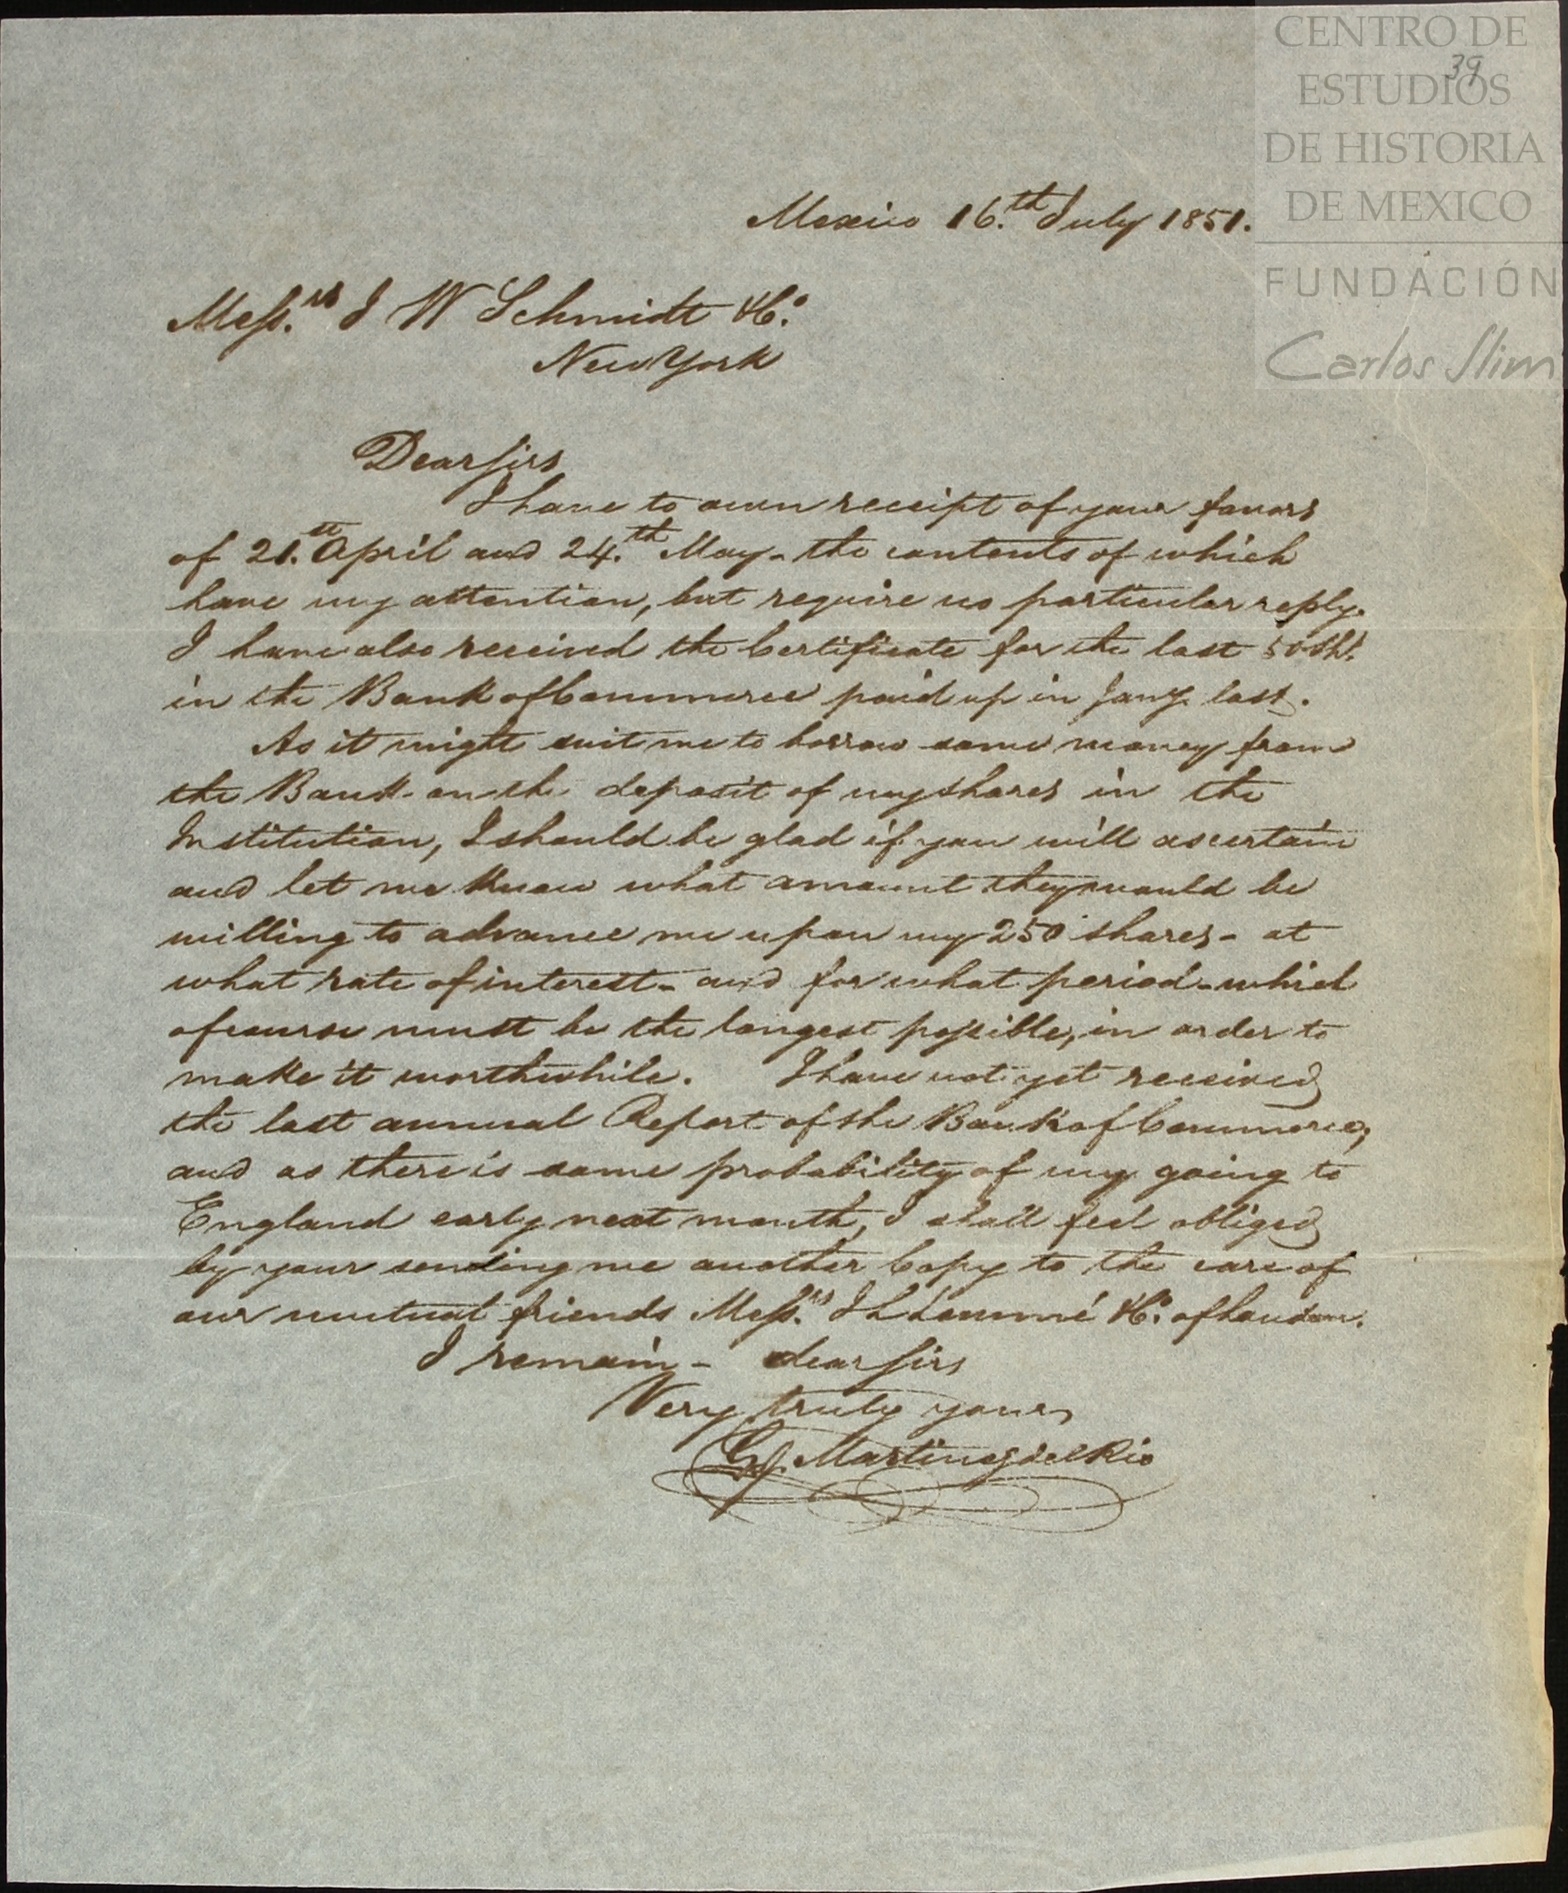 CENTRO DE
ESTUDIOS
DE HISTORIA
DE MEXICO
FUNDACIÓN
Carlos Slim
39
Mexico 16.th July 1851.
Mess.rs J W Schmidt &Co.
New York
Dear Sirs
I have to own receipt of your favors
of 21.st April and 24.th May - the contents of which
have my attention, but require no particular reply.
I have also received the Certificate for the last 50 Shs.
in the Bank of Commerce paid up in Jany. last.
As it might suit me to borrow some money from
the Bank on the deposit of my shares in the
Institution, I should be glad if you will ascertain
and let me know what amount they would be
willing to advance me upon my 250 shares - at
what rate of interest - and for what period - which
of course must be the longest possible, in order to
make it worth while. I have not yet received
the last annual Report of the Bank of Commerce,
and as there is some probability of my going to
England early next month, I shall feel obliged
by your sending me another Copy to the care of
our mutual friends Mess.rs J L Lemmé &Co. of London.
I remain - dear Sirs
Very truly yours
G. Martinez del Rio